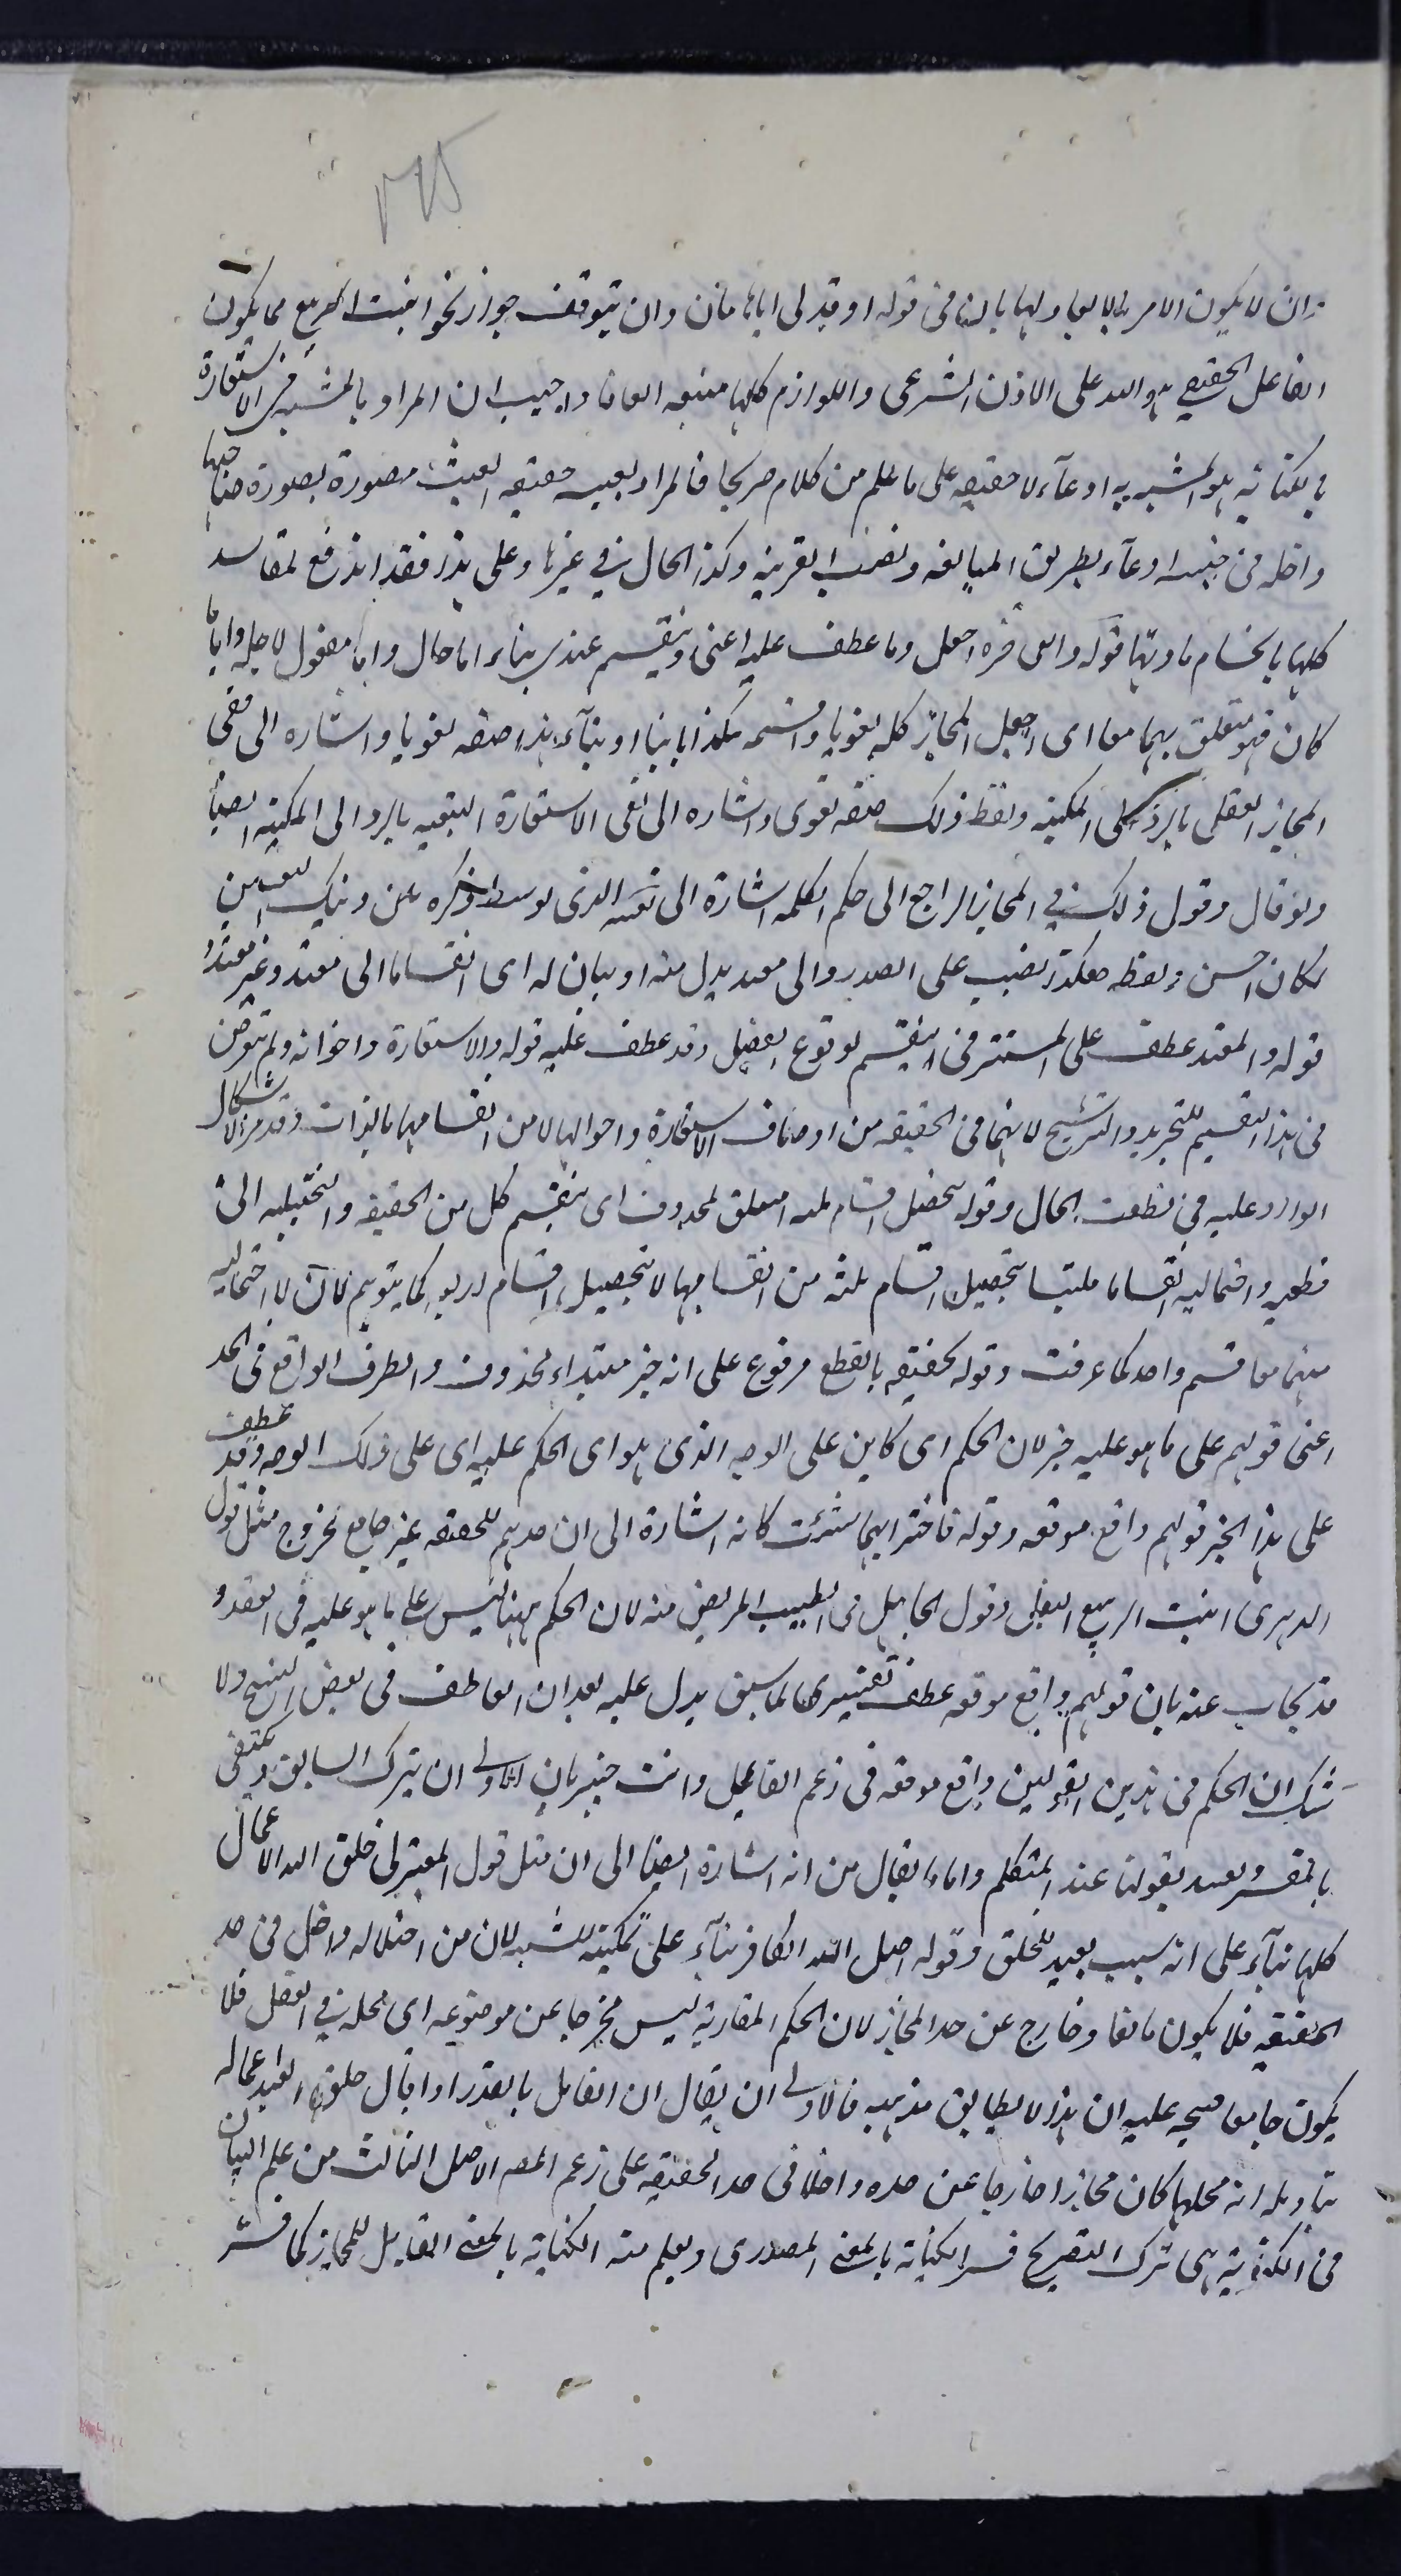 ٢٦٥
ان لا يكون الامر بالايقاد ولها بالبناء في قوله اوقد لي يا هامان وان يتوقف جواز نحو انبت الربيع مما يكون
الفاعل الحقيقي هو الله على الاذن الشرعي واللوازم كلها منتفية اتفاقا واجيب ان المراد بالمشبه في الاستعارة
بالكناية هو المشبه به ادعاء لا حقيقة على ما علم من كلام صريحا فالمراد بعيشة حقيقة العيش مصورة بصورة صاحبها
داخلة في جنسه ادعاء بطريق المبالغة ونصب القرينة وكذا الحال في غيرها وعلى هذا فقد اندفع المفاسد
كلها بانحسام مادتها قوله والى هذه اجعل وما عطف عليه اعني وينقسم عندي بناء اما حال واما مفعول لاجله واياما
كان فهو متعلق بهما معا اى اجعل المجاز كله لغويا واقسمه هكذا بانيا او بناء هذا صفة لغويا واشارة الى نفى
المجاز العقلي بالرد الى المكنية ولفظ ذلك صفة لغوى واشارة الى نفى الاستعارة التبعية بالرد الى المكنية ايضا
ولو قال وقول ذلك في المجاز الراجع الى حكم الكلمة اشارة الى نفيه الذى توسط ذكره بين ذينك النفيين
لكان احسن ولفظه هكذا نصب على المصدر والى مفيد بدل منه او بيان له اى انقساما الى مفيد وغير مفيد
قوله والمفيد عطف على المستتر في ينقسم لوقوع الفصل وقد عطف عليه قوله والاستعارة واخواته ولم يتعرض
في هذا التقسيم للتجريد والترشيح لانهما في الحقيقة من اوصاف الاستعارة واحوالها لا من اقسامها بالذات وقد مر الاشكال
الوارد عليه في نطقت الحال وقوله تحصل اقسام ثلثة متعلق بمحذوف اى ينقسم كل من الحقيقية والتخييلية الى
قطعية واحتمالية انقساما ملتبسا بتحصيل اقسام ثلثة من انقسامها لا بتحصيل اقسام اربعة كما يتوهم لان الاحتمالية
منهما معا قسم واحد كما عرفت وقوله حقيقة بالقطع مرفوع على انه خبر مبتداء محذوف والظرف الواقع في الحد
اعنى قولهم على ما هو عليه خبر لان الحكم اى كاين على الوجه الذى هو اى الحكم عليه اى على ذلك الوجه وقد عطف
على هذا الخبر قولهم واقع موقعه وقوله فاختر ايهما شئت كانه اشارة الى ان حدهم للحقيقة غير جامع لخروج مثل قول
الدهرى انبت الربيع البقل وقول الجاهل شفى الطبيب المريض منه لان الحكم ههنا ليس على ما هو عليه في العقد و
قد يجاب عنه بان قولهم واقع موقعه عطف تفسيرى لما سبق يدل عليه فقدان العاطف في بعض النسخ ولا
شك ان الحكم في هذين القولين واقع موقعه في زعم القايل وانت خبير بان الاولى ان يترك السابق ويكتفى
بالمفسر ويقيد بقولنا عند المتكلم واما ما يقال من انه اشارة ايضا الى ان مثل قول المعتزلى خلق الله الاعمال
كلها بناء على انه سبب بعيد للخلق وقوله اضل الله الكافر بناء على تمكينه للشبهة لان من اضلاله داخل في حد
الحقيقة فلا يكون مانعا وخارج عن حد المجاز لان الحكم المقارنة ليس مخرجا عن موضوعه اى محله في العقل فلا
يكون جامعا فيتجه عليه ان هذا لا يطابق مذهبه فالاولى ان يقال ان القايل بالقدر اذا قال خلق العبد اعماله
بتاويل انه محلها كان مجازا خارجا عن حده داخلا في حد الحقيقة على زعم المصـ الاصل الثالث من علم البيان
في الكناية هى ترك التصريح فسر الكناية بالمعنى المصدرى ويعلم منه الكناية بالمعنى المقابل للمجاز كما فسر